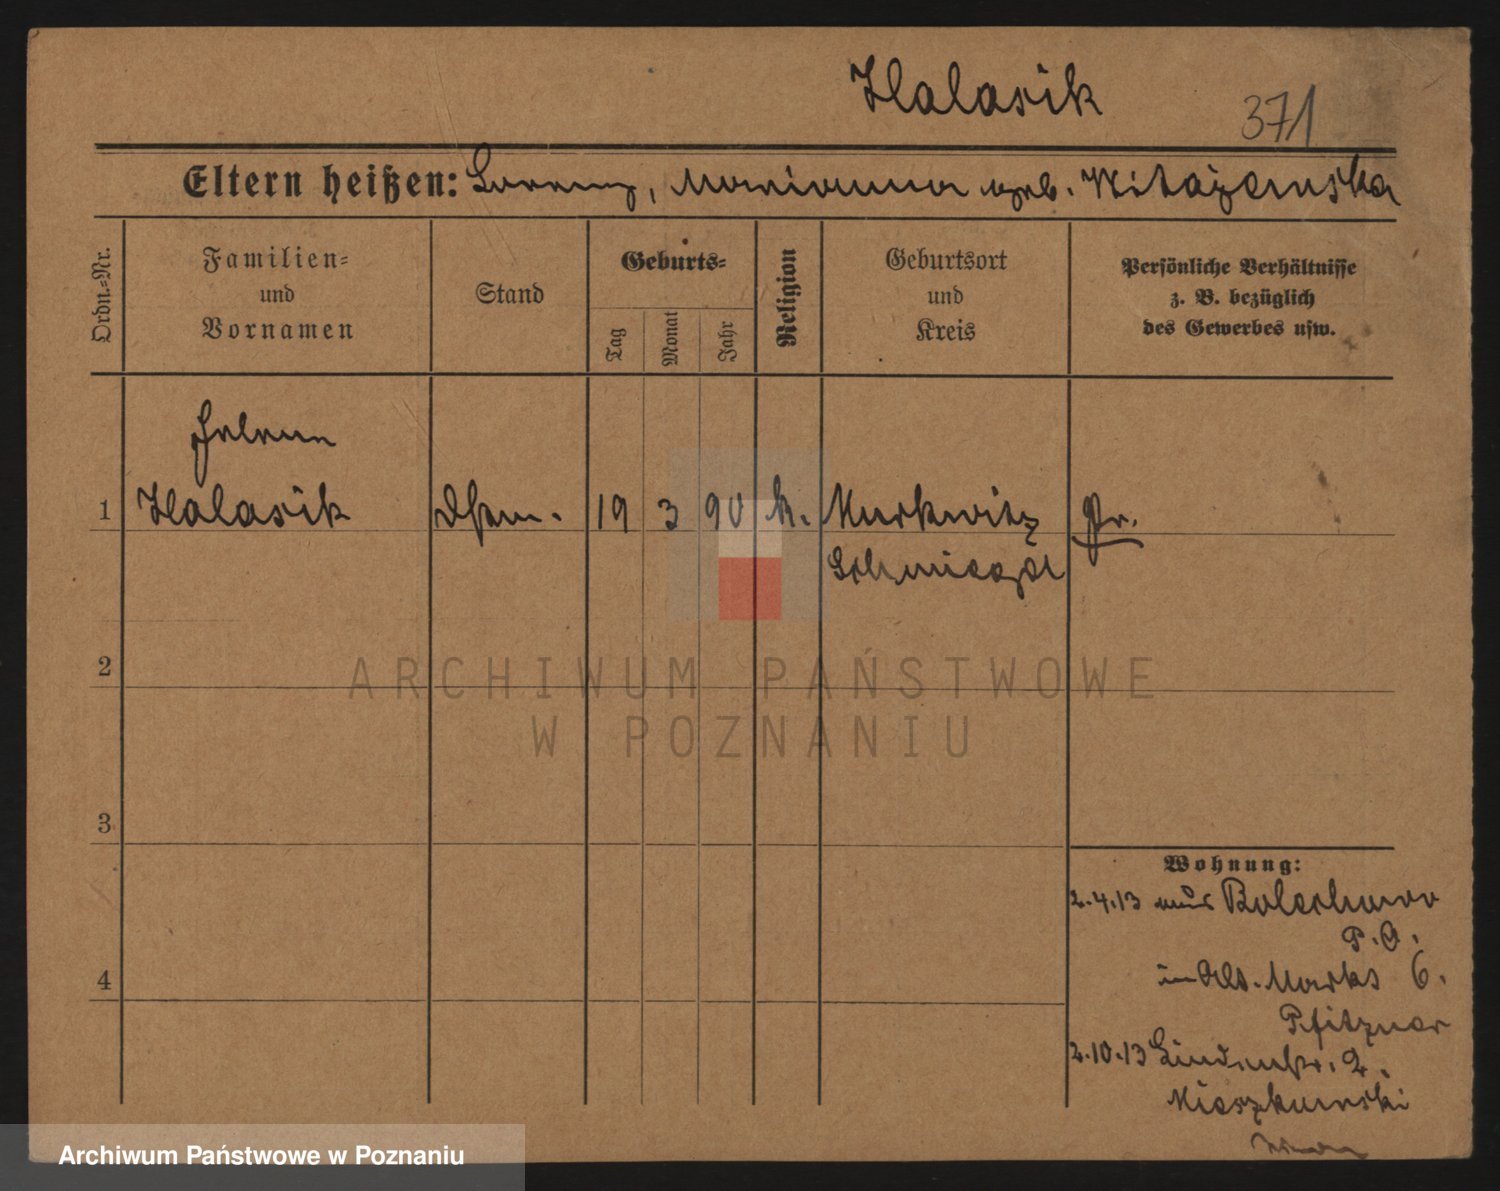 Halasik
371
Eltern heißen: Lorenz, Marianna geb. Witażenska
Ordn.-Nr.
Familien-
und
Vornamen
Stand
Geburts-
Tag
Monat
Jahr
Religion
Geburtsort
und
Kreis
Persönliche Verhältnisse
z. B. bezüglich
des Gewerbes usw.
Helena
1 Halasik 19 3 90 k. Murkwitz Pr.
Schmiegel
2
3
4
Wohnung:
2.4.13 aus Bolechowo
P. O.
in Alt. Markt 6.
Pfitzner
2.10.13 Lindenstr. 2.
ARCHIWUM PAŃSTWOWE
W POZNANIU
Archiwum Państwowe w Poznaniu